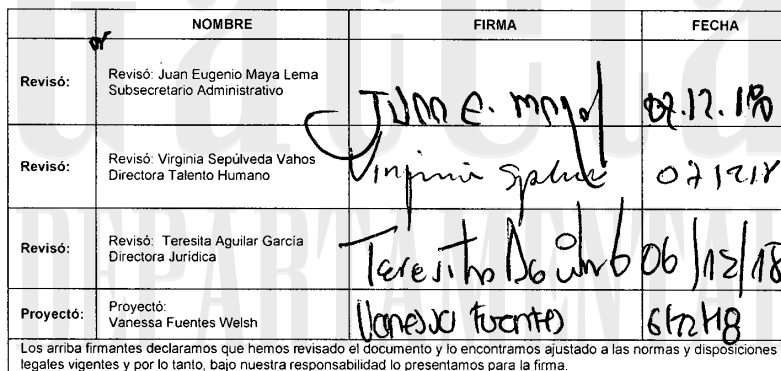 Gaceta
DEPARTAMENTAL
NOMBRE FIRMA FECHA
Revisó: Revisó: Juan Eugenio Maya Lema
Subsecretario Administrativo
Juan E. Maya 07.12.18
Revisó: Revisó: Virginia Sepúlveda Vahos
Directora Talento Humano
Virginia 071218
Revisó: Revisó: Teresita Aguilar García
Directora Jurídica
Teresita Aguilar 06/12/18
Proyectó: Proyectó:
Vanessa Fuentes Welsh
Vanessa Fuentes 6/12/18
Los arriba firmantes declaramos que hemos revisado el documento y lo encontramos ajustado a las normas y disposiciones
legales vigentes y por lo tanto, bajo nuestra responsabilidad lo presentamos para la firma.